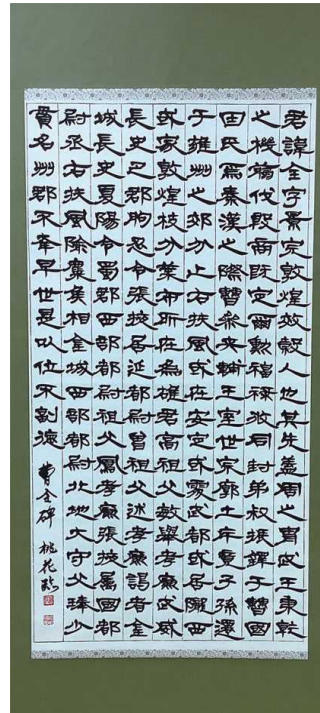 君諱全字景完敦煌效穀人也其先蓋周之胄武王秉乾
之機翦伐殷商既定爾勳福祿攸同封弟叔振鐸于曹國
因氏焉秦漢之際曹參夾輔王室世宗廓土斥竟子孫遷
于雍州之郊分止右扶風或在安定或處武都或居隴西
或家敦煌枝分葉布所在為雄君高祖父敏舉孝廉武威
長史巴郡朐忍令張掖居延都尉曾祖父述孝廉謁者金
城長史夏陽令蜀郡西部都尉祖父鳳孝廉張掖屬國都
尉丞右扶風隃麋侯相金城西部都尉北地大守父琫少
貫名州郡不幸早世是以位不副德
曹全碑 桃花臨